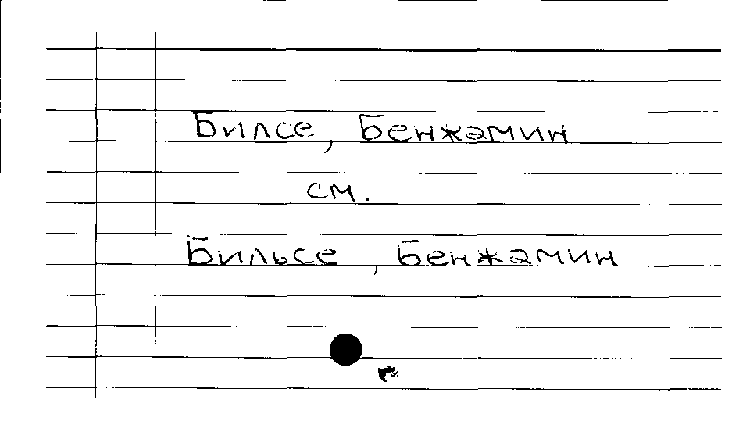 Билсе, Бенжамин
см.
Бильсе, Бенжамин